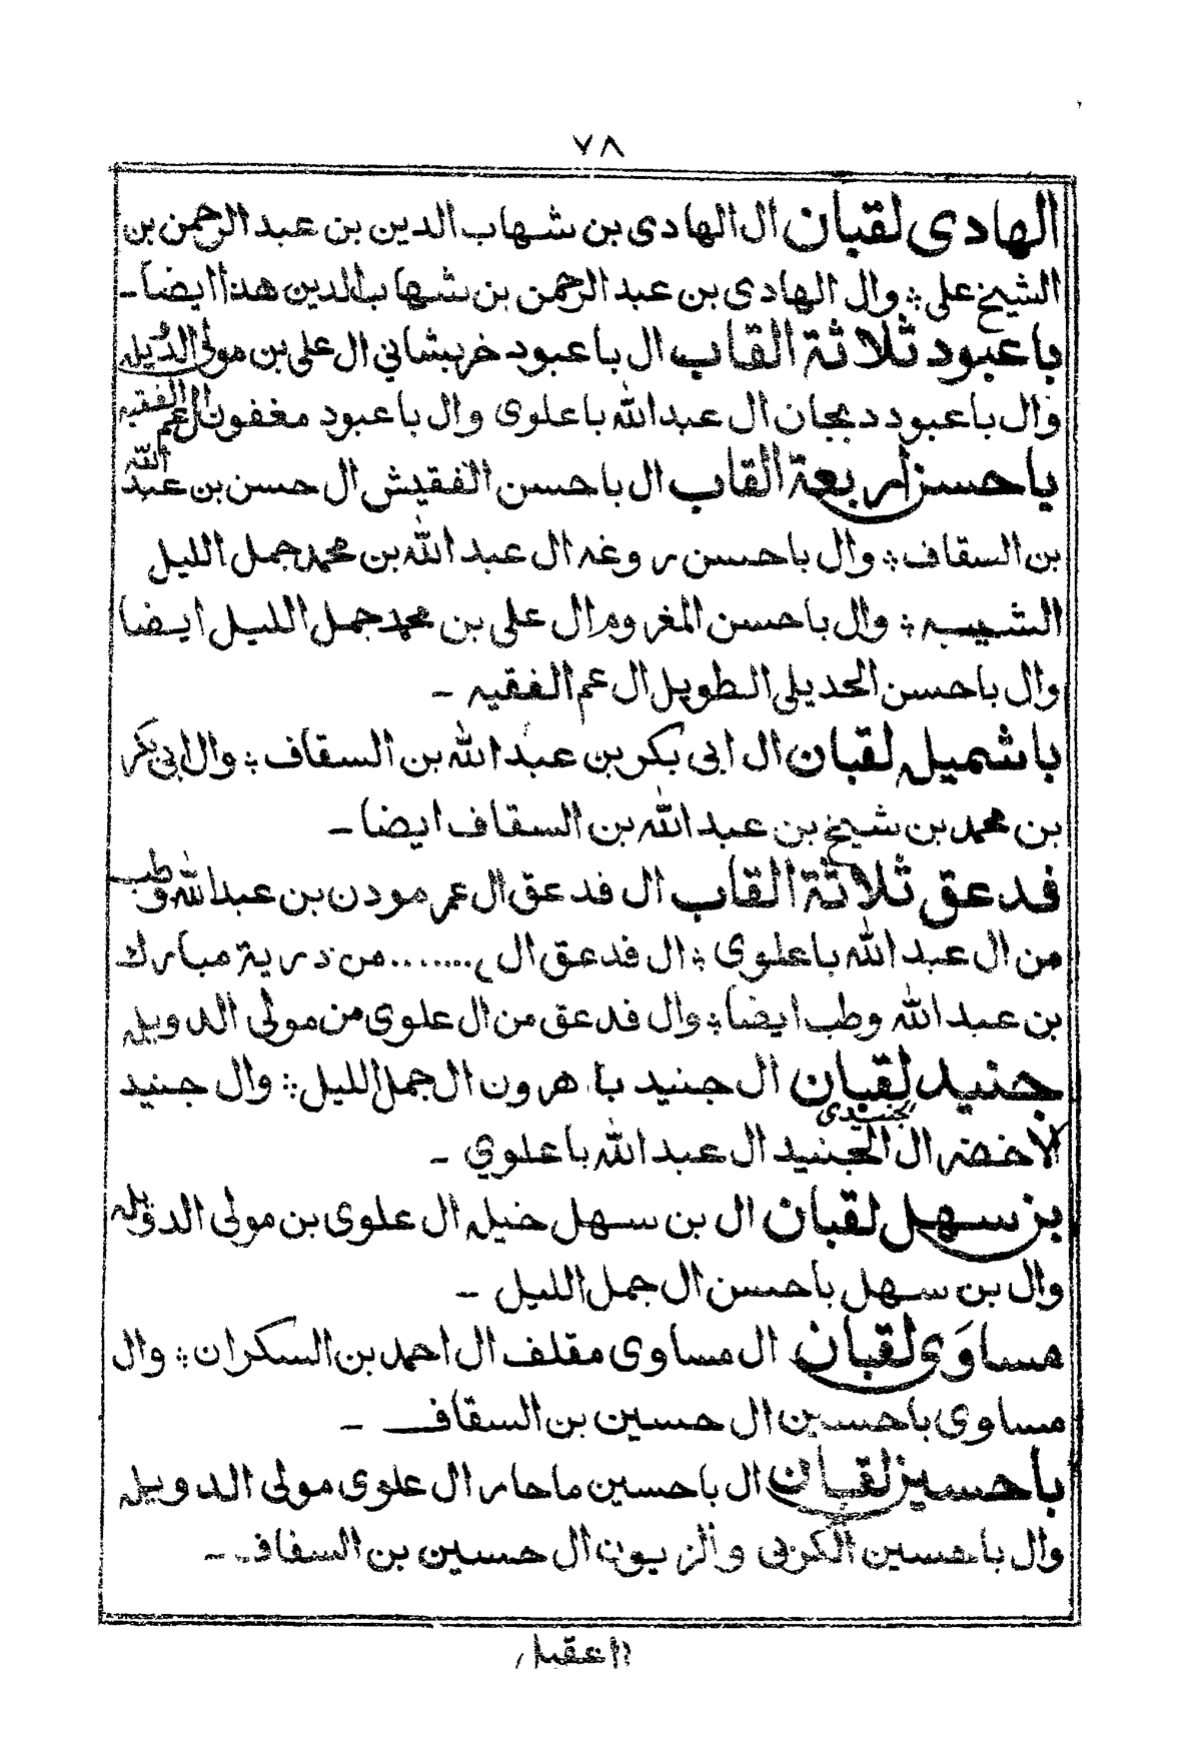 ٧٨
الهادى لقبان ال الهادى بن شهاب الدين بن عبد الرحمن بن
الشيخ على ؞ وال الهادى بن عبد الرحمن بن شهاب الدين هذا ايضاً ـ
باعبود ثلاثة القاب ال باعبود خربشانى ال على بن مولى الدّيله
وال باعبود دبجان ال عبد الله باعلوى وال باعبود مغفون ال عم الفقيه
باحسن اربعة القاب ال باحسن الفقيش ال حسن بن عبد الله
بن السقاف ؞ وال باحسن روغه ال عبد الله بن محمد جمل الليل
الشيبه ؞ وال باحسن المغروم ال على بن محمد جمل الليل ايضا
وال باحسن الحديلى الطويل ال عم الفقيه ـ
باشميله لقبان ال ابى بكر بن عبد الله بن السقاف ؞ وال ابى بكر
بن محمد بن شيخ بن عبد الله بن السقاف ايضا ـ
فدعق ثلاثة القاب ال فدعق ال عمر مودن بن عبد الله وطب
من ال عبد الله باعلوى ؞ ال فدعق ال ........ من ذرية مبارك
بن عبد الله وطب ايضا ؞ وال فدعق من ال علوى من مولى الدويله
جنيد لقبان ال جنيد با هرون ال جمل الليل ؞ وال جنيد
الاخضر ال الجنيد ال عبد الله باعلوي ـ
بن سهل لقبان ال بن سهل خيله ال علوى بن مولى الدويله
وال بن سهل باحسن ال جمل الليل ـ
مساوَى لقبان ال مساوى مقلف ال احمد بن السكران ؞ وال
مساوى باحسين ال حسين بن السقاف ـ
باحسين لقبان ال باحسين ماحار ال علوى مولى الدويله
وال باحسين الكربى والزبون ال حسين بن السفاف ـ
العقيل